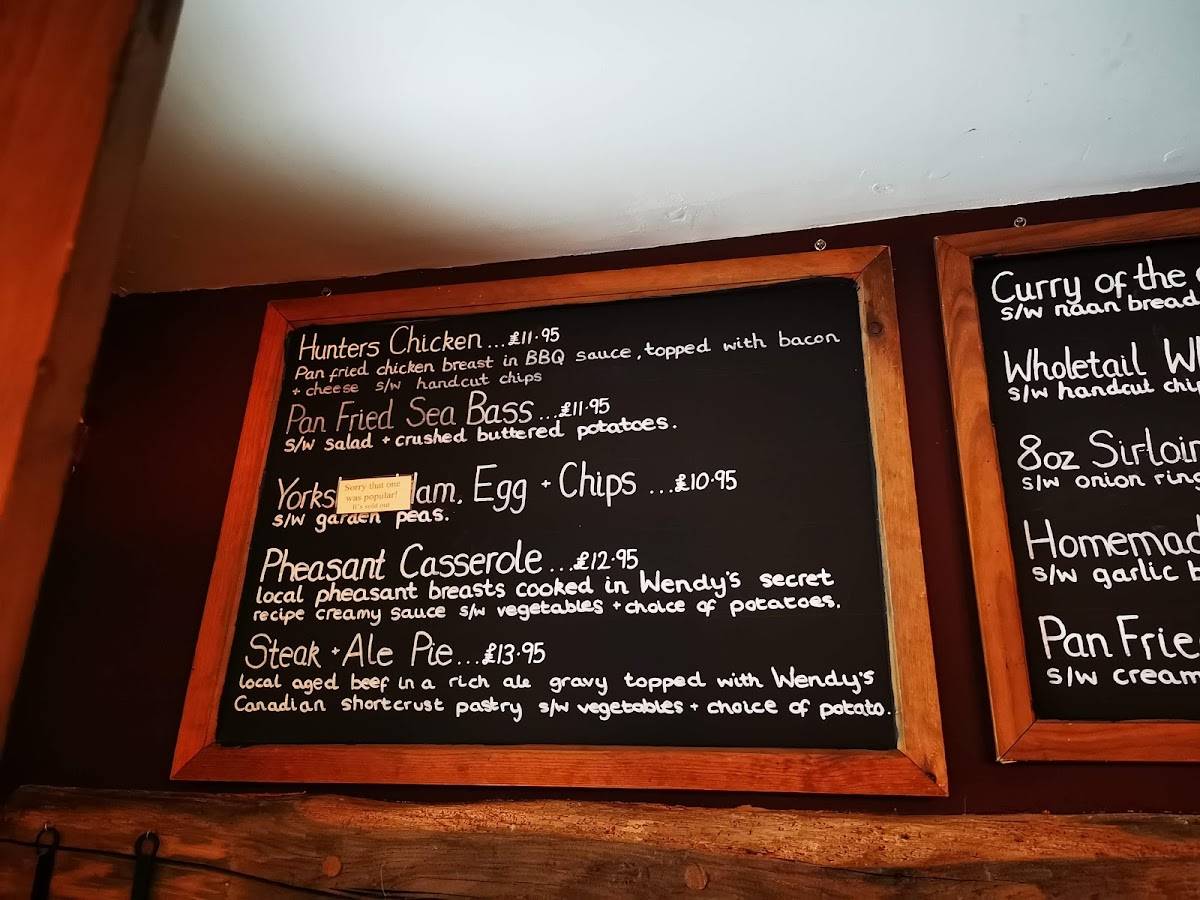 Hunters Chicken...£11.95
Pan fried chicken breast in BBQ sauce, topped with bacon
+ cheese s/w handcut chips
Pan Fried Sea Bass...£11.95
s/w salad + crushed buttered potatoes.
Sorry that one
was popular!
It's sold out
Egg + Chips ...£10.95
s/w garden peas.
Pheasant Casserole...£12.95
local pheasant breasts cooked in Wendy's secret
recipe creamy sauce s/w vegetables + choice of potatoes.
Steak + Ale Pie...£13.95
local aged beef in a rich ale gravy topped with Wendy's
Canadian shortcrust pastry s/w vegetables + choice of potato.
Curry of the
s/w naan bread
Wholetail
s/w handcut
8oz
s/w onion
s/w garlic
Pan
s/w